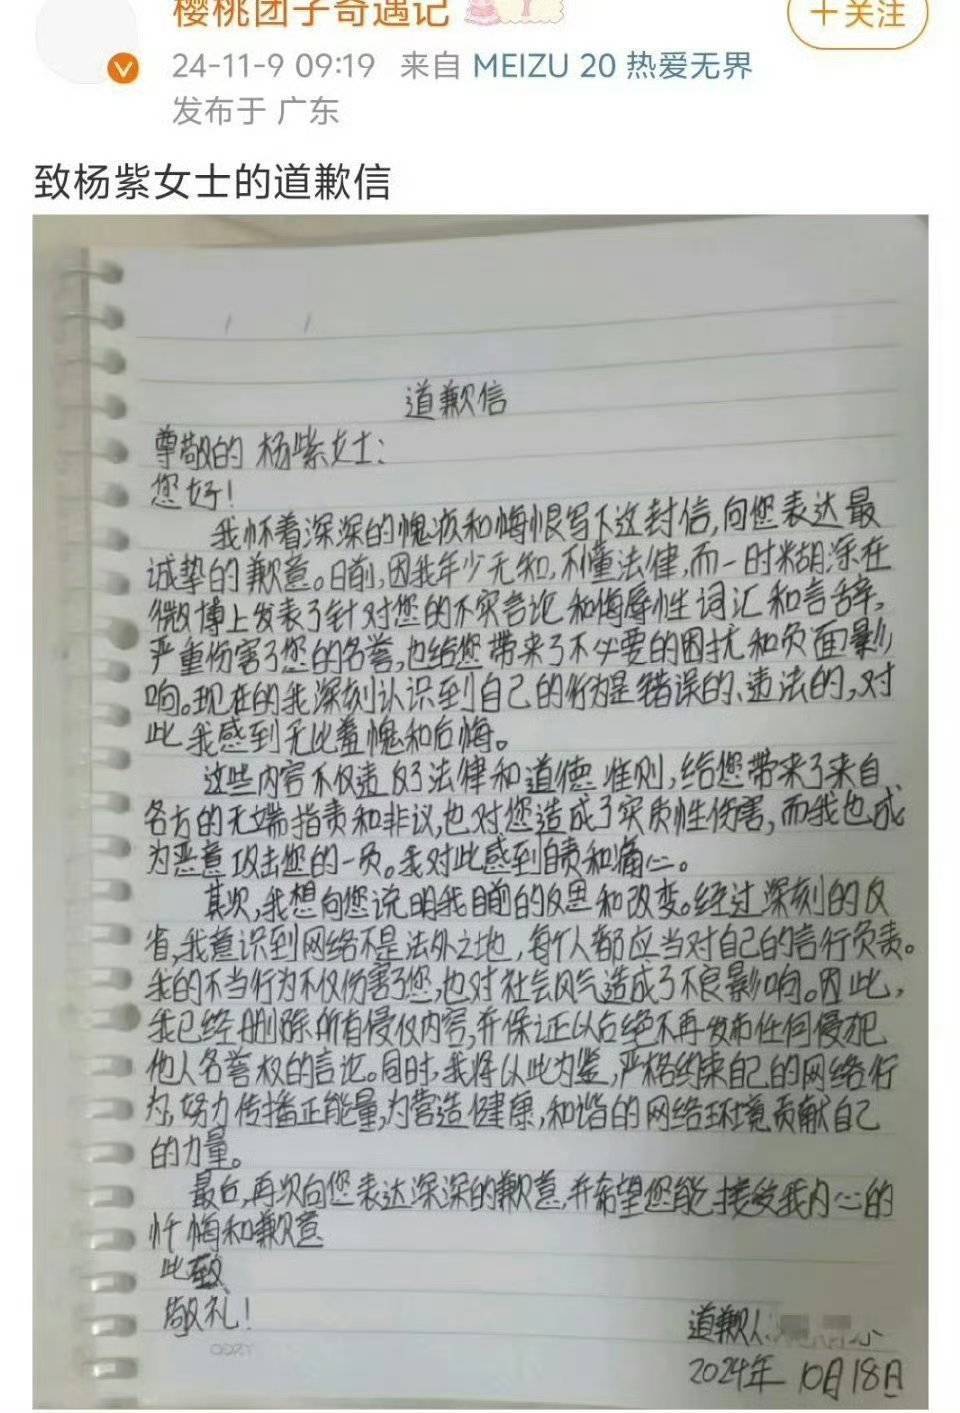 樱桃团子奇遇记
+关注
24-11-9 09:19 来自 MEIZU 20 热爱无界
发布于 广东
致杨紫女士的道歉信
道歉信
尊敬的 杨紫女士:
您好!
我怀着深深的愧疚和悔恨写下这封信,向您表达最
诚挚的歉意。日前,因我年少无知,不懂法律,而一时糊涂在
微博上发表了针对您的不实言论和侮辱性词汇和言辞,
严重伤害了您的名誉,也给您带来了不必要的困扰和负面影
响。现在的我深刻认识到自己的行为是错误的、违法的,对
此我感到无比羞愧和后悔。
这些内容不仅违反了法律和道德准则,给您带来了来自
各方的无端指责和非议,也对您造成了实质性伤害,而我也成
为恶意攻击您的一员。我对此感到自责和痛心。
其次,我想向您说明我目前的反思和改变。经过深刻的反
省,我意识到网络不是法外之地,每个人都应当对自己的言行负责。
我的不当行为不仅伤害了您,也对社会风气造成了不良影响。因此,
我已经删除所有侵权内容,并保证以后绝不再发布任何侵犯
他人名誉权的言论。同时,我将以此为鉴,严格约束自己的网络行
为,努力传播正能量,为营造健康,和谐的网络环境贡献自己
的力量。
最后,再次向您表达深深的歉意,并希望您能接受我内心的
忏悔和歉意
此致
敬礼!
道歉人:
2024年 10月18日